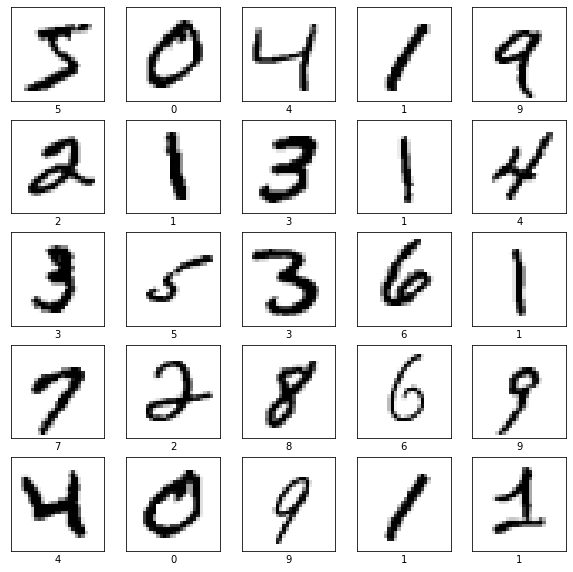 5 0 4 1 9
5 0 4 1 9
2 1 3 1 4
2 1 3 1 4
3 5 3 6 1
3 5 3 6 1
7 2 8 6 9
7 2 8 6 9
4 0 9 1 1
4 0 9 1 1